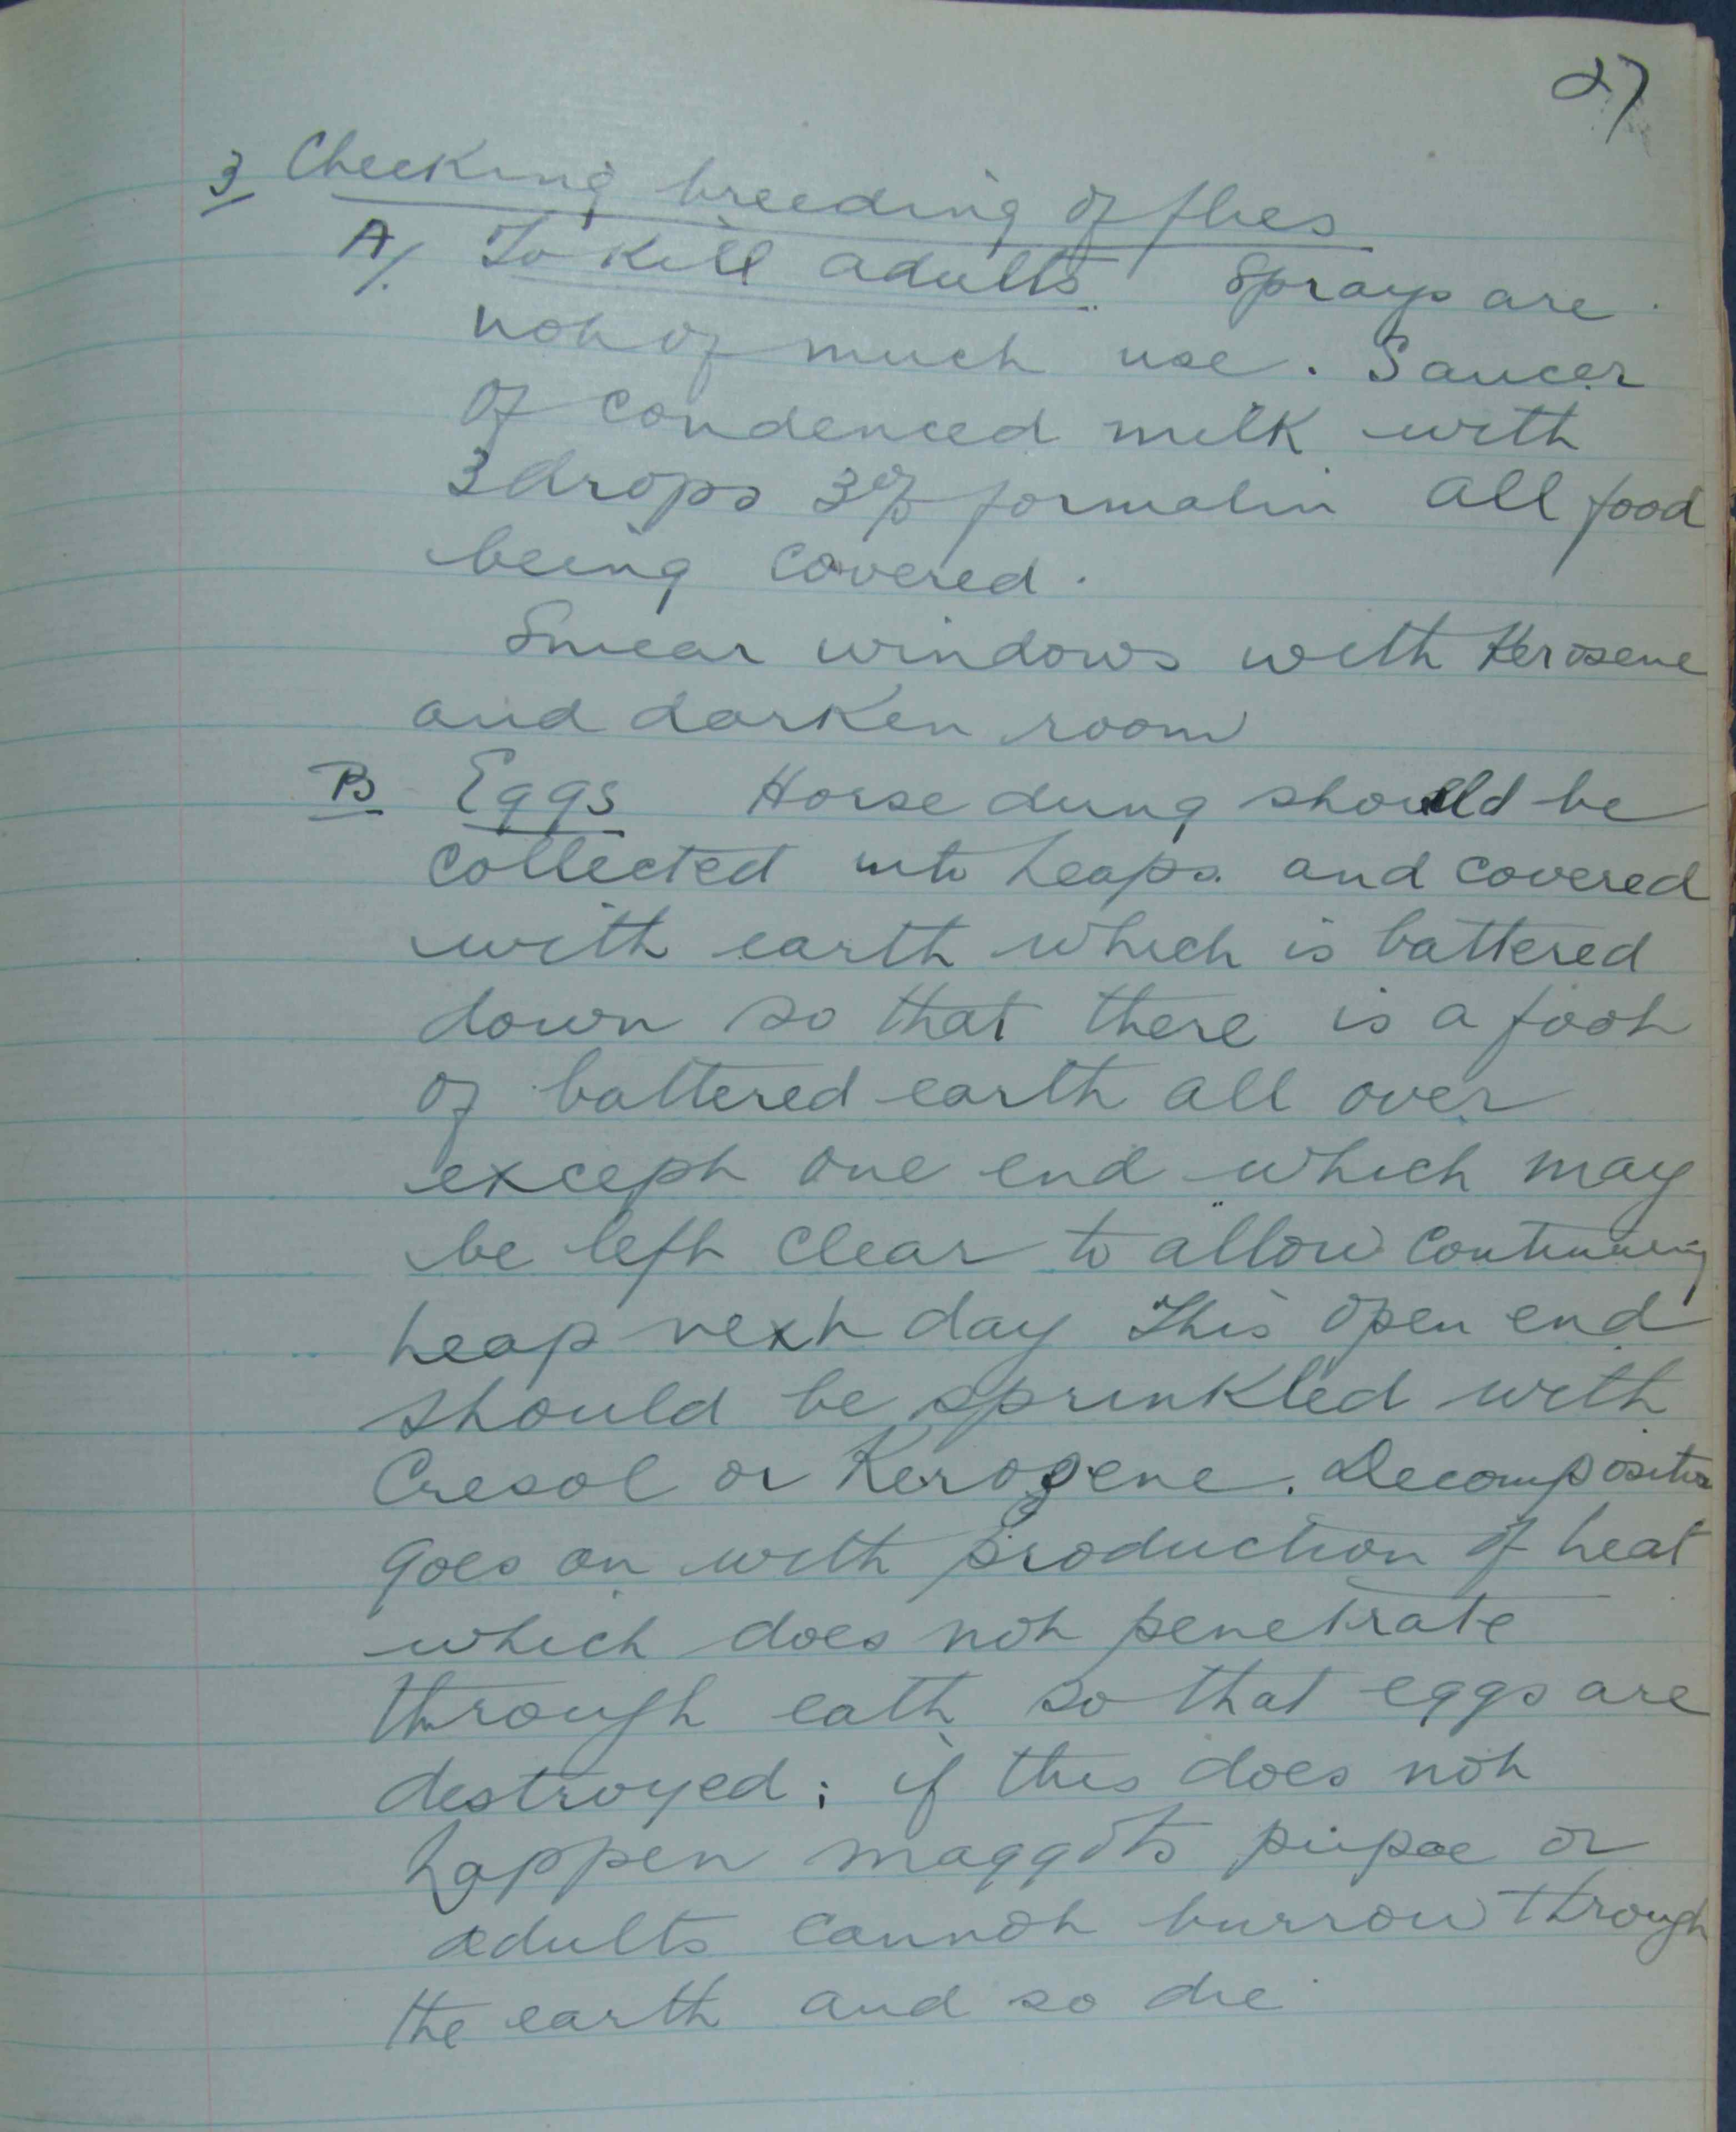 27
3 Checking breeding of flies
A/. To Kill adults. Sprays are
not of much use. Saucer
of condenced milk with
3 drops 3% formalin all food
being covered.
Smear windows with Kerosene
and darken room
B Eggs Horse dung should be
collected into heaps and covered
with earth which is battered
down so that there is a foot
of battered earth all over
except one end which may
be left clear to allow continuing
heap next day This open end
should be sprinkled with
Cresol or Kerosene. Decomposition
goes on with production of heat
which does not penetrate
through eath so that eggs are
destroyed; if this does not
happen maggots pupae or
adults cannot burrow through
the earth and so die